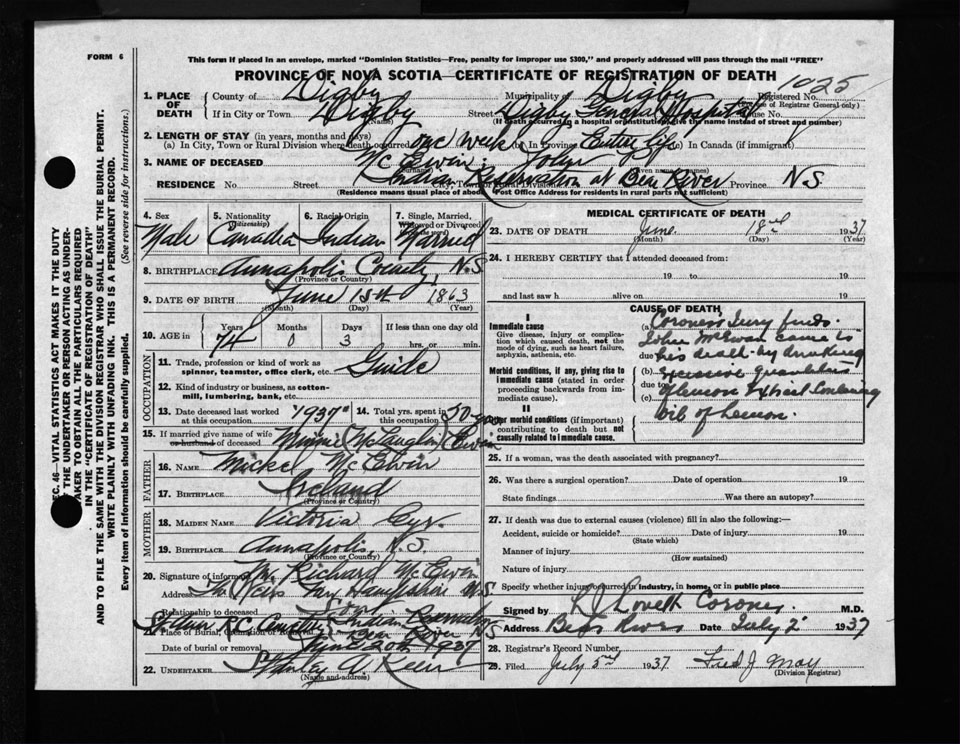 FORM 6
This form if placed in an envelope, marked "Dominion Statistics—Free, penalty for improper use $300," and properly addressed will pass through the mail "FREE"
PROVINCE OF NOVA SCOTIA—CERTIFICATE OF REGISTRATION OF DEATH
1025
1. PLACE OF DEATH
County of Digby Municipality of Digby Registered No.
(Use of Registrar General only)
If in City or Town Digby Street Digby General Hospital House No.
(Name) (If death occurred in a hospital or institution, give its name instead of street and number)
2. LENGTH OF STAY (in years, months and days)
(a) In City, Town or Rural Division where death occurred one week (b) In Province Entire life (c) In Canada (if immigrant)
3. NAME OF DECEASED McEwin: John
(Surname) (Given names)
RESIDENCE No. Street Indian Reservation at Bear River City, Town or Rural Division Province N.S.
(Residence means usual place of abode. Post Office Address for residents in rural parts not sufficient)
4. Sex 5. Nationality (Citizenship) 6. Racial Origin 7. Single, Married, Widowed or Divorced
Male Canadian Indian Married
8. BIRTHPLACE Annapolis County, N.S
(Province or Country)
9. DATE OF BIRTH June 15th 1863
(Month) (Day) (Year)
10. AGE in Years Months Days If less than one day old
74 0 3 hrs. or min.
OCCUPATION
11. Trade, profession or kind of work as spinner, teamster, office clerk, etc. Guide
12. Kind of industry or business, as cotton-mill, lumbering, bank, etc.
13. Date deceased last worked at this occupation "1937" 14. Total yrs. spent in this occupation 50
15. If married give name of wife or husband of deceased Minnie
FATHER
16. NAME Mickel McEwin
17. BIRTHPLACE Ireland
(Province or Country)
MOTHER
18. MAIDEN NAME Victoria
19. BIRTHPLACE Annapolis, N.S.
(Province or Country)
20. Signature of informant Mr. Richard McEwin
Address
Relationship to deceased Son
21. Place of Burial, Cremation or Removal R.C. Indian Bear River N.S
Date of burial or removal June 20th 1937
22. UNDERTAKER Stanley A.
(Name and address)
MEDICAL CERTIFICATE OF DEATH
23. DATE OF DEATH June 18th 1937
(Month) (Day) (Year)
24. I HEREBY CERTIFY that I attended deceased from:
19 to 19
and last saw h alive on 19
CAUSE OF DEATH
I
Immediate cause
Give disease, injury or complication which caused death, not the mode of dying, such as heart failure, asphyxia, asthenia, etc.
Morbid conditions, if any, giving rise to immediate cause (stated in order proceeding backwards from immediate cause).
II
Other morbid conditions (if important) contributing to death but not causally related to immediate cause.
(a) Coroners Jury finds
John McEwan came to
due to his death by drinking
(b) excessive quantities
due to
(c) of Lemon Extract Containing
oil of Lemon.
25. If a woman, was the death associated with pregnancy?
26. Was there a surgical operation? Date of operation 19
State findings Was there an autopsy?
27. If death was due to external causes (violence) fill in also the following:—
Accident, suicide or homicide? Date of injury 19
(State which)
Manner of injury
(How sustained)
Nature of injury
Specify whether injury occurred in industry, in home, or in public place
Signed by Lovett Coroner. M.D.
Address Bear River Date July 2 1937
28. Registrar's Record Number
29. Filed July 2nd 1937 Fred J May
(Division Registrar)
SEC. 46—VITAL STATISTICS ACT MAKES IT THE DUTY OF THE UNDERTAKER OR PERSON ACTING AS UNDERTAKER TO OBTAIN ALL THE PARTICULARS REQUIRED IN THE "CERTIFICATE OF REGISTRATION OF DEATH" AND TO FILE THE SAME WITH THE DIVISION REGISTRAR WHO SHALL ISSUE THE BURIAL PERMIT.
WRITE PLAINLY WITH UNFADING INK. THIS IS A PERMANENT RECORD.
Every item of Information should be carefully supplied. (See reverse side for instructions.)